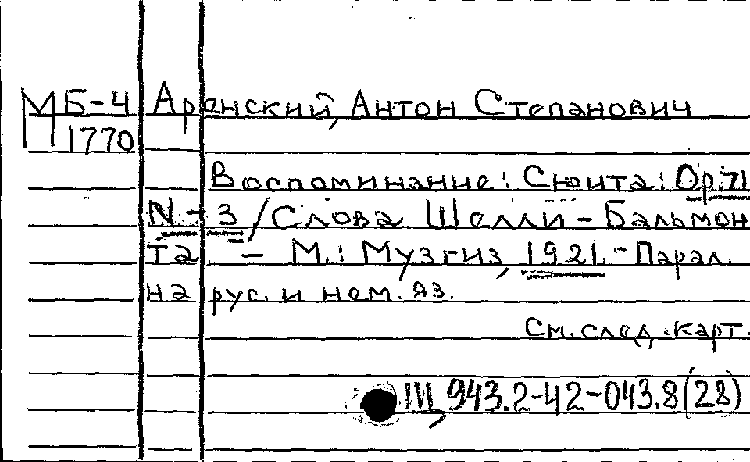 МБ-4 Аренский, Антон Степанович
1770
Воспоминание: Сюита: Op.71
N-3/Слова Шелли-Бальмон
та. - М.: Музгиз, 1921.-Парал.
на рус. и нем. яз.
См. след. карт.
Щ 943.2-42-043.8(28)